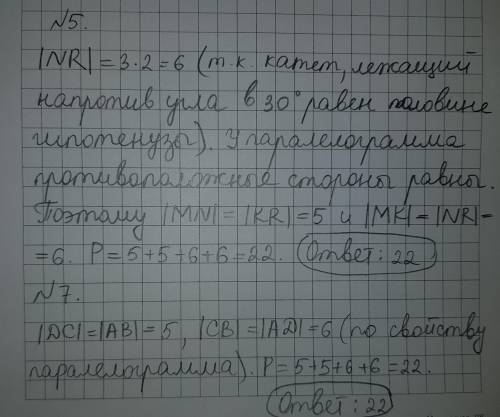 №5.
|NR| = 3·2 = 6 (т.к. катет, лежащий
напротив угла в 30° равен половине
гипотенузы). У паралелограмма
противополжные стороны равны.
Поэтому |MN| = |KR| = 5 и |MK| = |NR| =
= 6. P = 5+5+6+6 = 22. Ответ: 22
№7.
|DC| = |AB| = 5, |CB| = |AD| = 6 (по свойству
паралелограмма). P = 5+5+6+6 = 22.
Ответ: 22